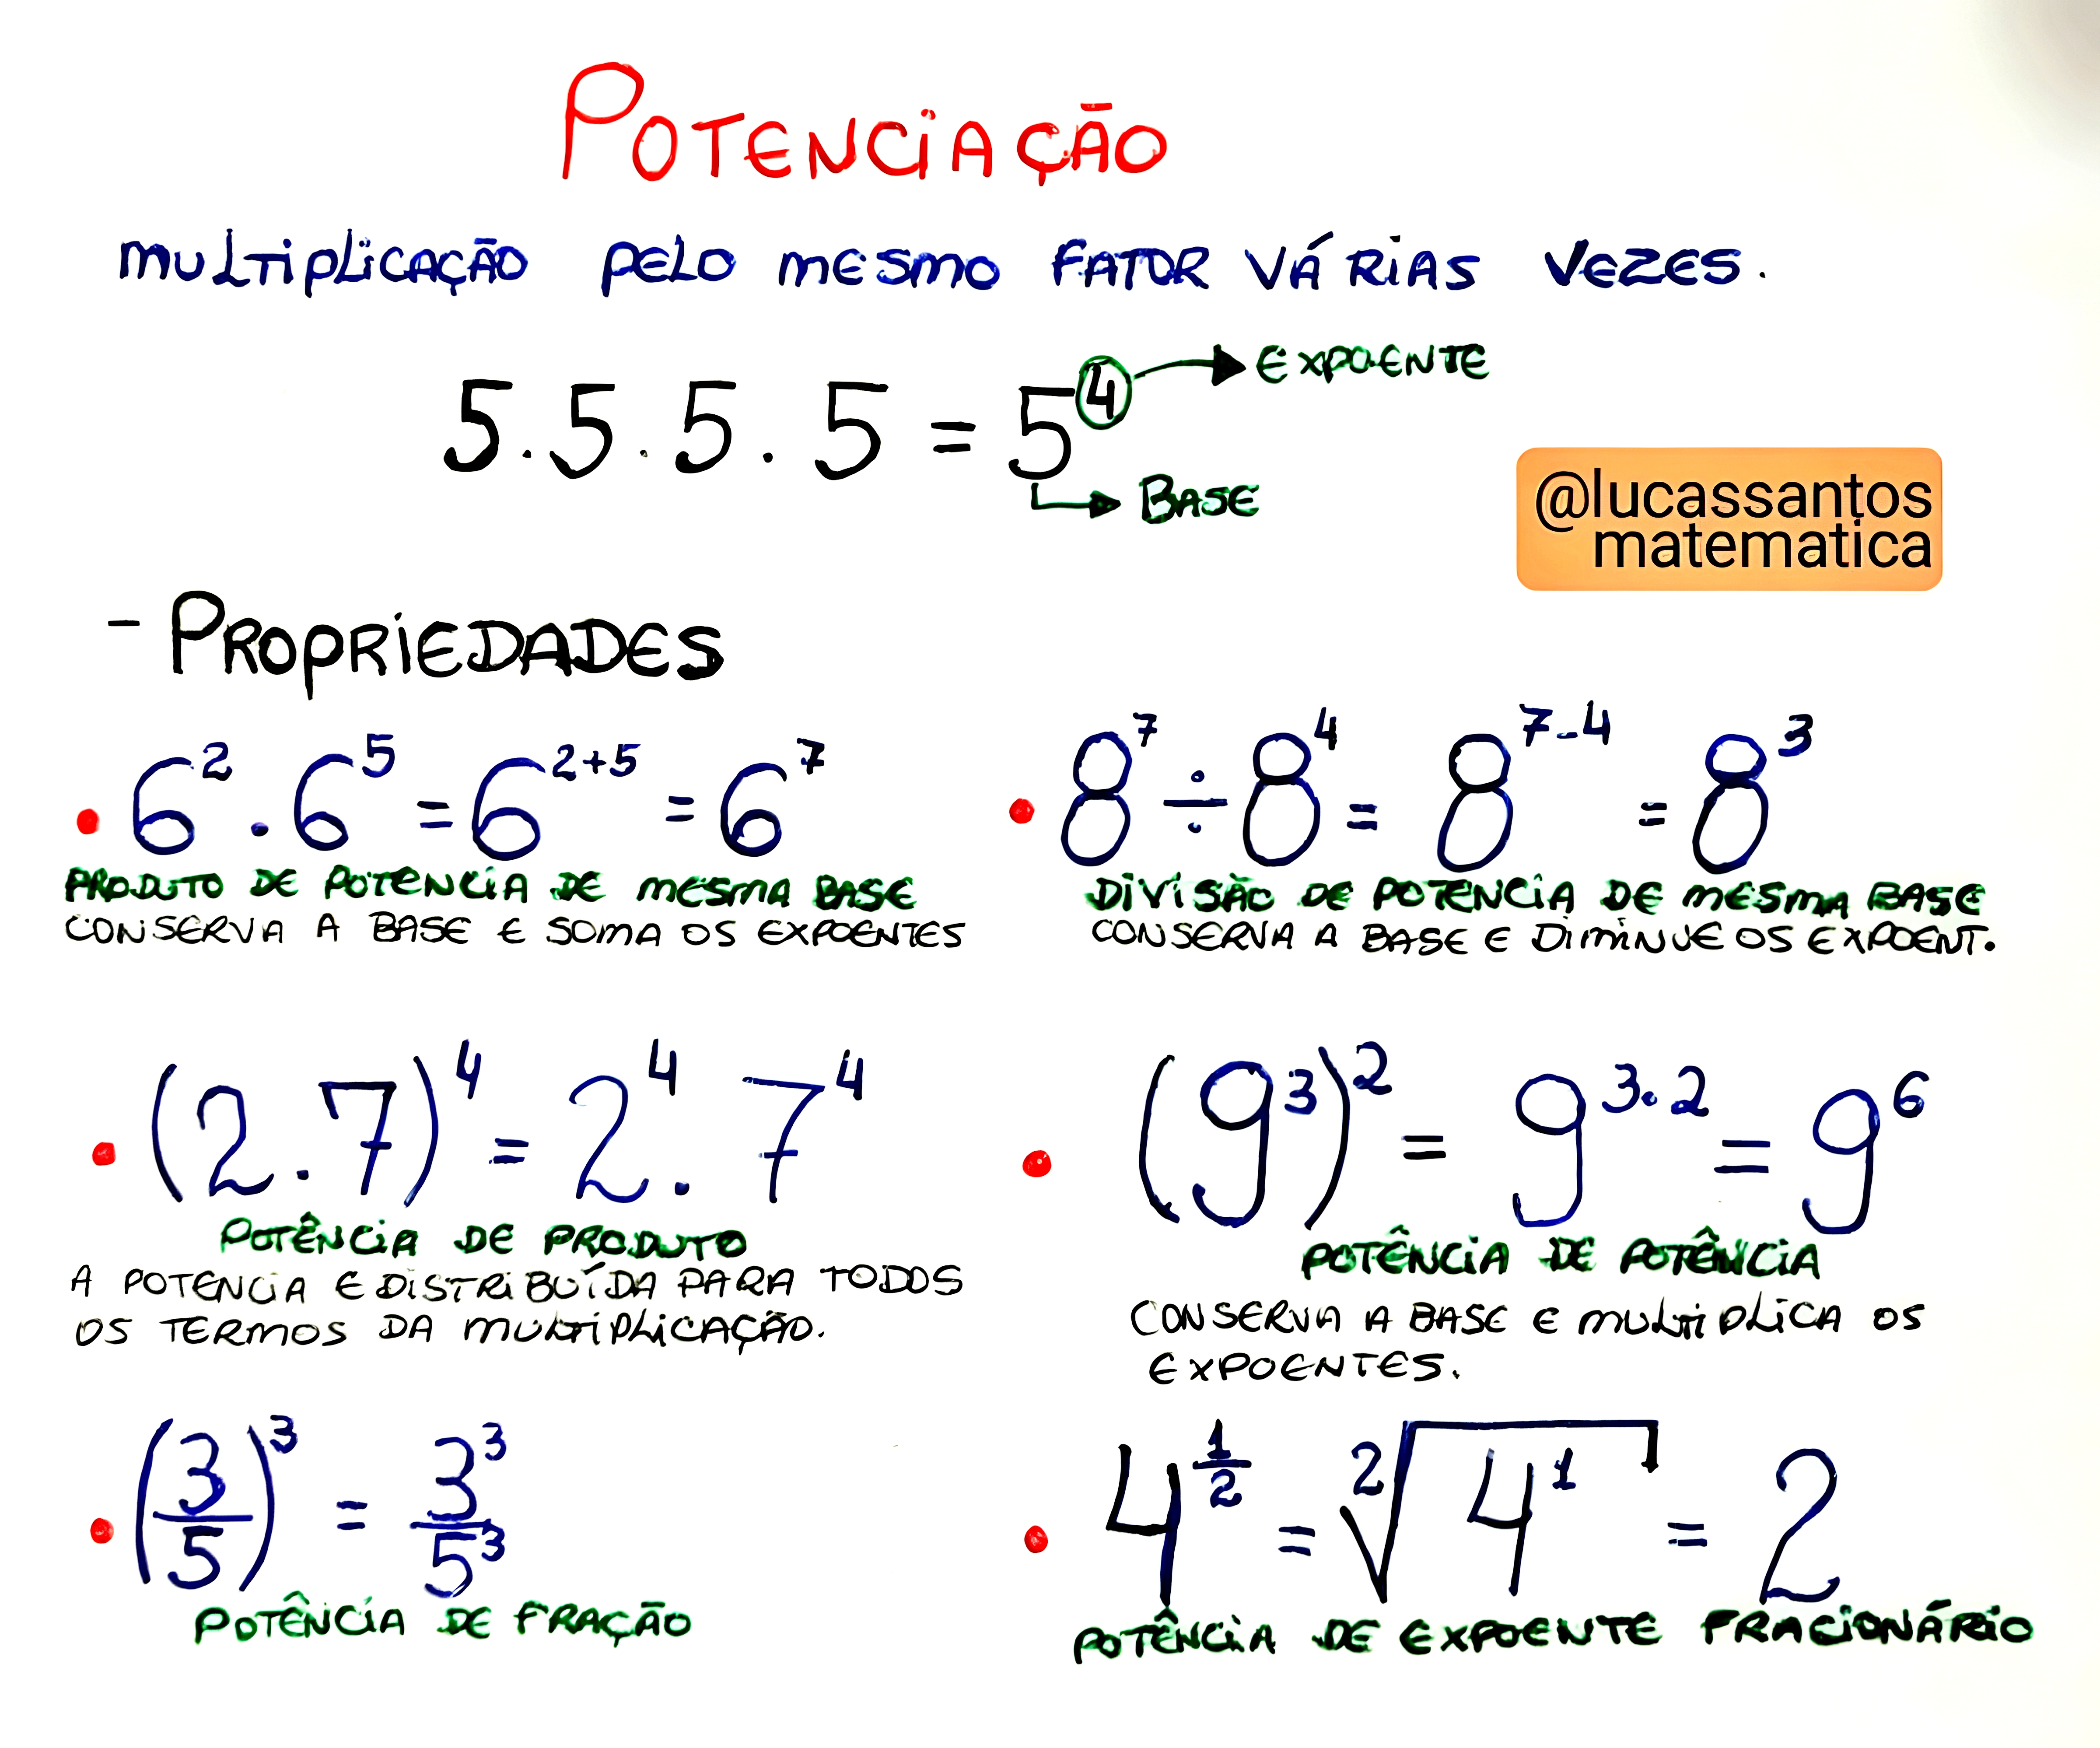 POTENCIAÇÃO
MULTIPLICAÇÃO PELO MESMO FATOR VÁRIAS VEZES.
5.5.5.5 = 5⁴ → EXPOENTE
→ BASE
@lucassantos
matematica
- PROPRIEDADES
• 6² . 6⁵ = 6²⁺⁵ = 6⁷
PRODUTO DE POTENCIA DE MESMA BASE
CONSERVA A BASE E SOMA OS EXPOENTES
• 8⁷ ÷ 8⁴ = 8⁷⁻⁴ = 8³
DIVISÃO DE POTENCIA DE MESMA BASE
CONSERVA A BASE E DIMINUE OS EXPOENT.
• (2.7)⁴ = 2⁴ . 7⁴
POTÊNCIA DE PRODUTO
A POTENCIA E DISTRIBUÍDA PARA TODOS
OS TERMOS DA MULTIPLICAÇÃO.
• (9³)² = 9³·² = 9⁶
POTÊNCIA DE POTÊNCIA
CONSERVA A BASE E MULTIPLICA OS
EXPOENTES.
• (3/5)³ = 3³/5³
POTÊNCIA DE FRAÇÃO
• 4^(1/2) = ²√4¹ = 2
POTÊNCIA DE EXPOENTE FRACIONÁRIO